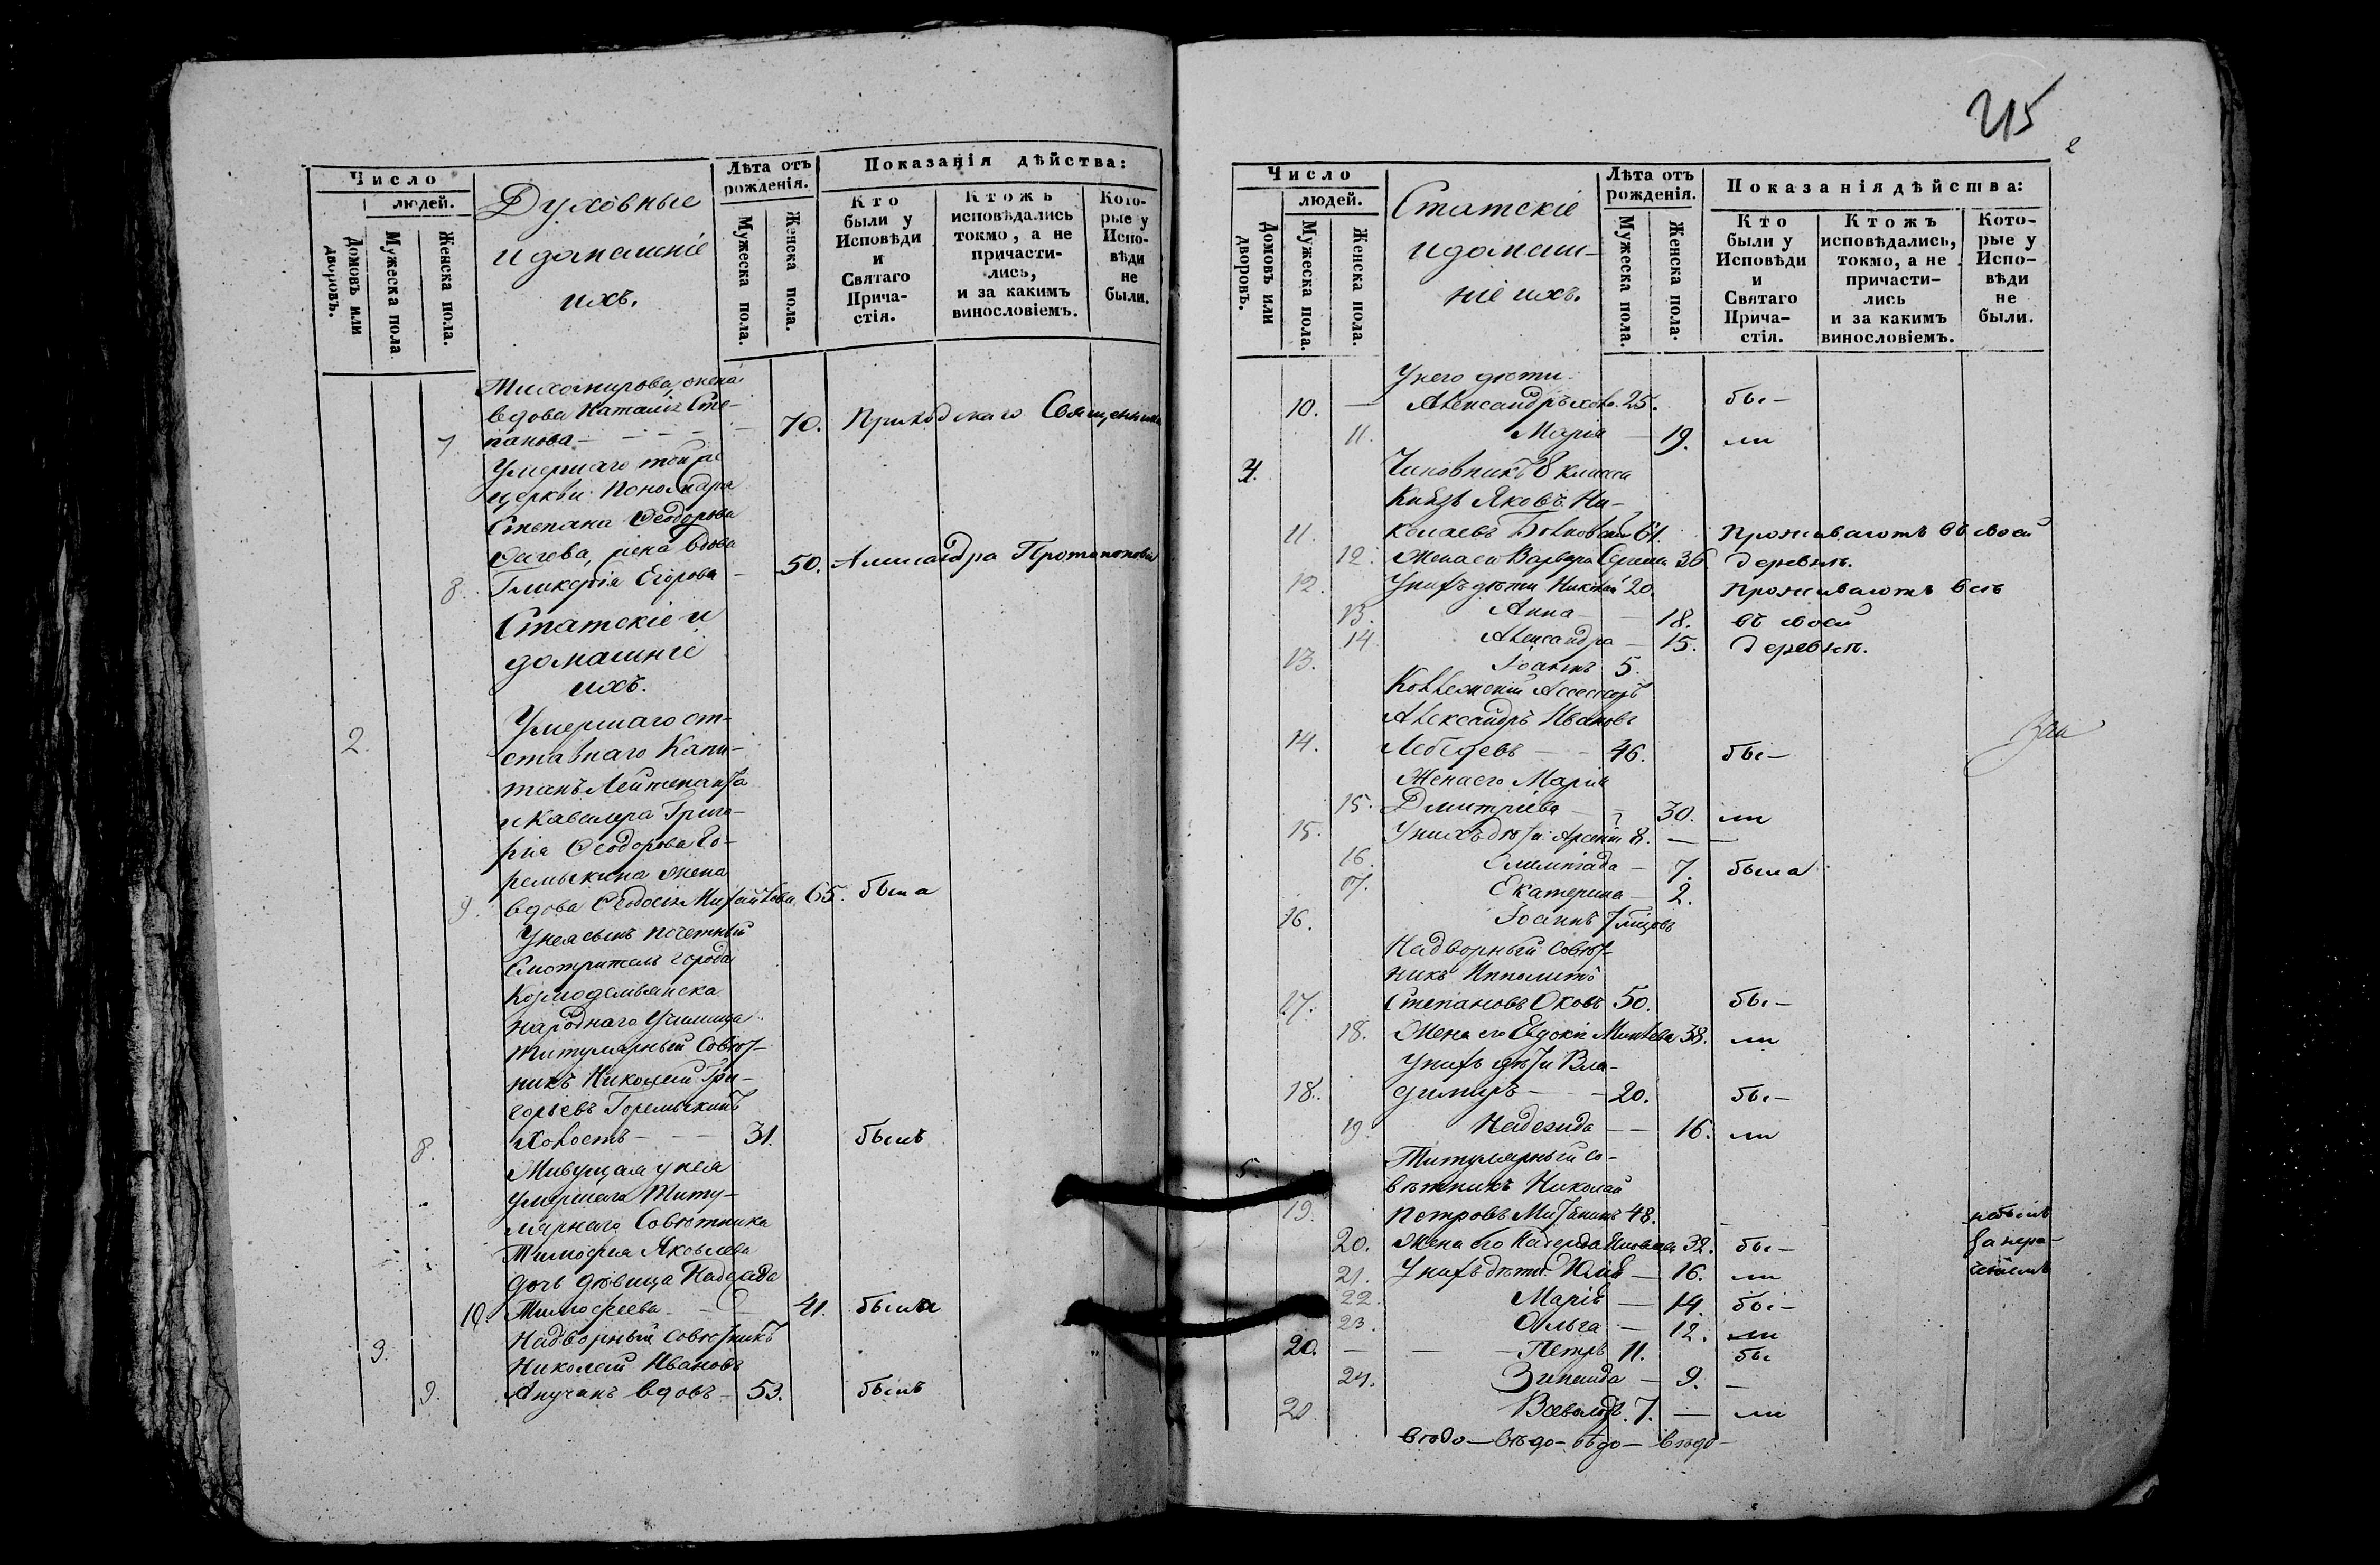 215
2
Число
людей.
Домовъ или дворовъ.
Мужеска пола
Женска пола.
Духовные
и домашніе
ихъ.
Лѣта отъ
рожденія.
Мужеска пола.
Женска пола.
Показанія дѣйства:
Кто
были у
Исповѣди
и
Святаго
Прича-
стія.
Ктожъ
исповѣдались
токмо, а не
причасти-
лись,
и за какимъ
винословіемъ.
Кото-
рые у
Испо-
вѣди
не
были.
Тихомирова жена
вдова Наталія Сте-
7. панова 70. Приходскаго Священника
Умершаго той же
церкви Пономаря
Степана Ѳеодорова
жена вдова
8. Гликерія Егорова 50. Александра Протопопова
Статскіе и
домашніе
ихъ.
2. Умершаго от-
ставнаго Капи-
танъ Лейтенанта
и Кавалера Григо-
рія Ѳеодорова Го-
ремыкина жена
9. вдова Ѳеодосія Михайлова 65. была
У нея сынъ почетный
Смотритель города
Козмодемьянска
народнаго Училища
Титулярный Совѣт-
никъ Николай Гри-
горьевъ Горемыкинъ
8. холостъ 31. былъ
Живущая у нея
умершаго Титу-
лярнаго Совѣтника
Тимофея Яковлева
дочь дѣвица Надежда
10. Тимофеева 41. была
3. Надворный совѣтникъ
Николай Ивановъ
9. вдовъ 53. былъ
Число
людей.
Домовъ или дворовъ.
Мужеска пола.
Женска пола.
Статскіе
и домаш-
ніе ихъ.
Лѣта отъ
рожденія.
Мужеска пола.
Женска пола.
Показанія дѣйства:
Кто
были у
Исповѣди
и
Святаго
Прича-
стія.
Ктожъ
исповѣдались,
токмо, а не
причасти-
лись
и за какимъ
винословіемъ.
Кото-
рые у
Испо-
вѣди
не
были.
У него дѣти
10. Александръ холо. 25. бы-
11. Марія 19. ли
4. Чиновникъ 8 класса
Князь Яковъ Ни-
11. колаевъ 61. Проживаютъ въ своей
12. Жена его Варвара 36 деревнѣ.
12. У нихъ дѣти Николай 20. Проживаютъ всѣ
13. Анна 18. въ своей
14. Александра 15. деревнѣ.
13. Іоаннъ 5.
Коллежскій Ассесоръ
Александръ Ивановъ
14. Лебедевъ 46. бы-
Жена его Марія
15. Дмитріева 30. ли
15. У нихъ дѣти: Арсеній 8.
16. Олимпіада 7. была
17. Екатерина 2.
16. Іоаннъ 7 мѣсяцовъ
Надворный совѣт-
никъ Ипполитъ
17. Степановъ 50. бы-
18. Жена его Евдокія 38. ли
У нихъ дѣти Вла-
18. димиръ 20. бы-
19. Надежда 16. ли
5. Титулярный со-
вѣтникъ Николай
19. Петровъ 48. небылъ
20. Жена его 32. бы- за нера-
21. У нихъ дѣти: Юлія 16. ли
22. Марія 14. бы-
23. Ольга 12. ли
20. Петръ 11. бы
24. Зинаида 9.
20 Всеволодъ 7. ли